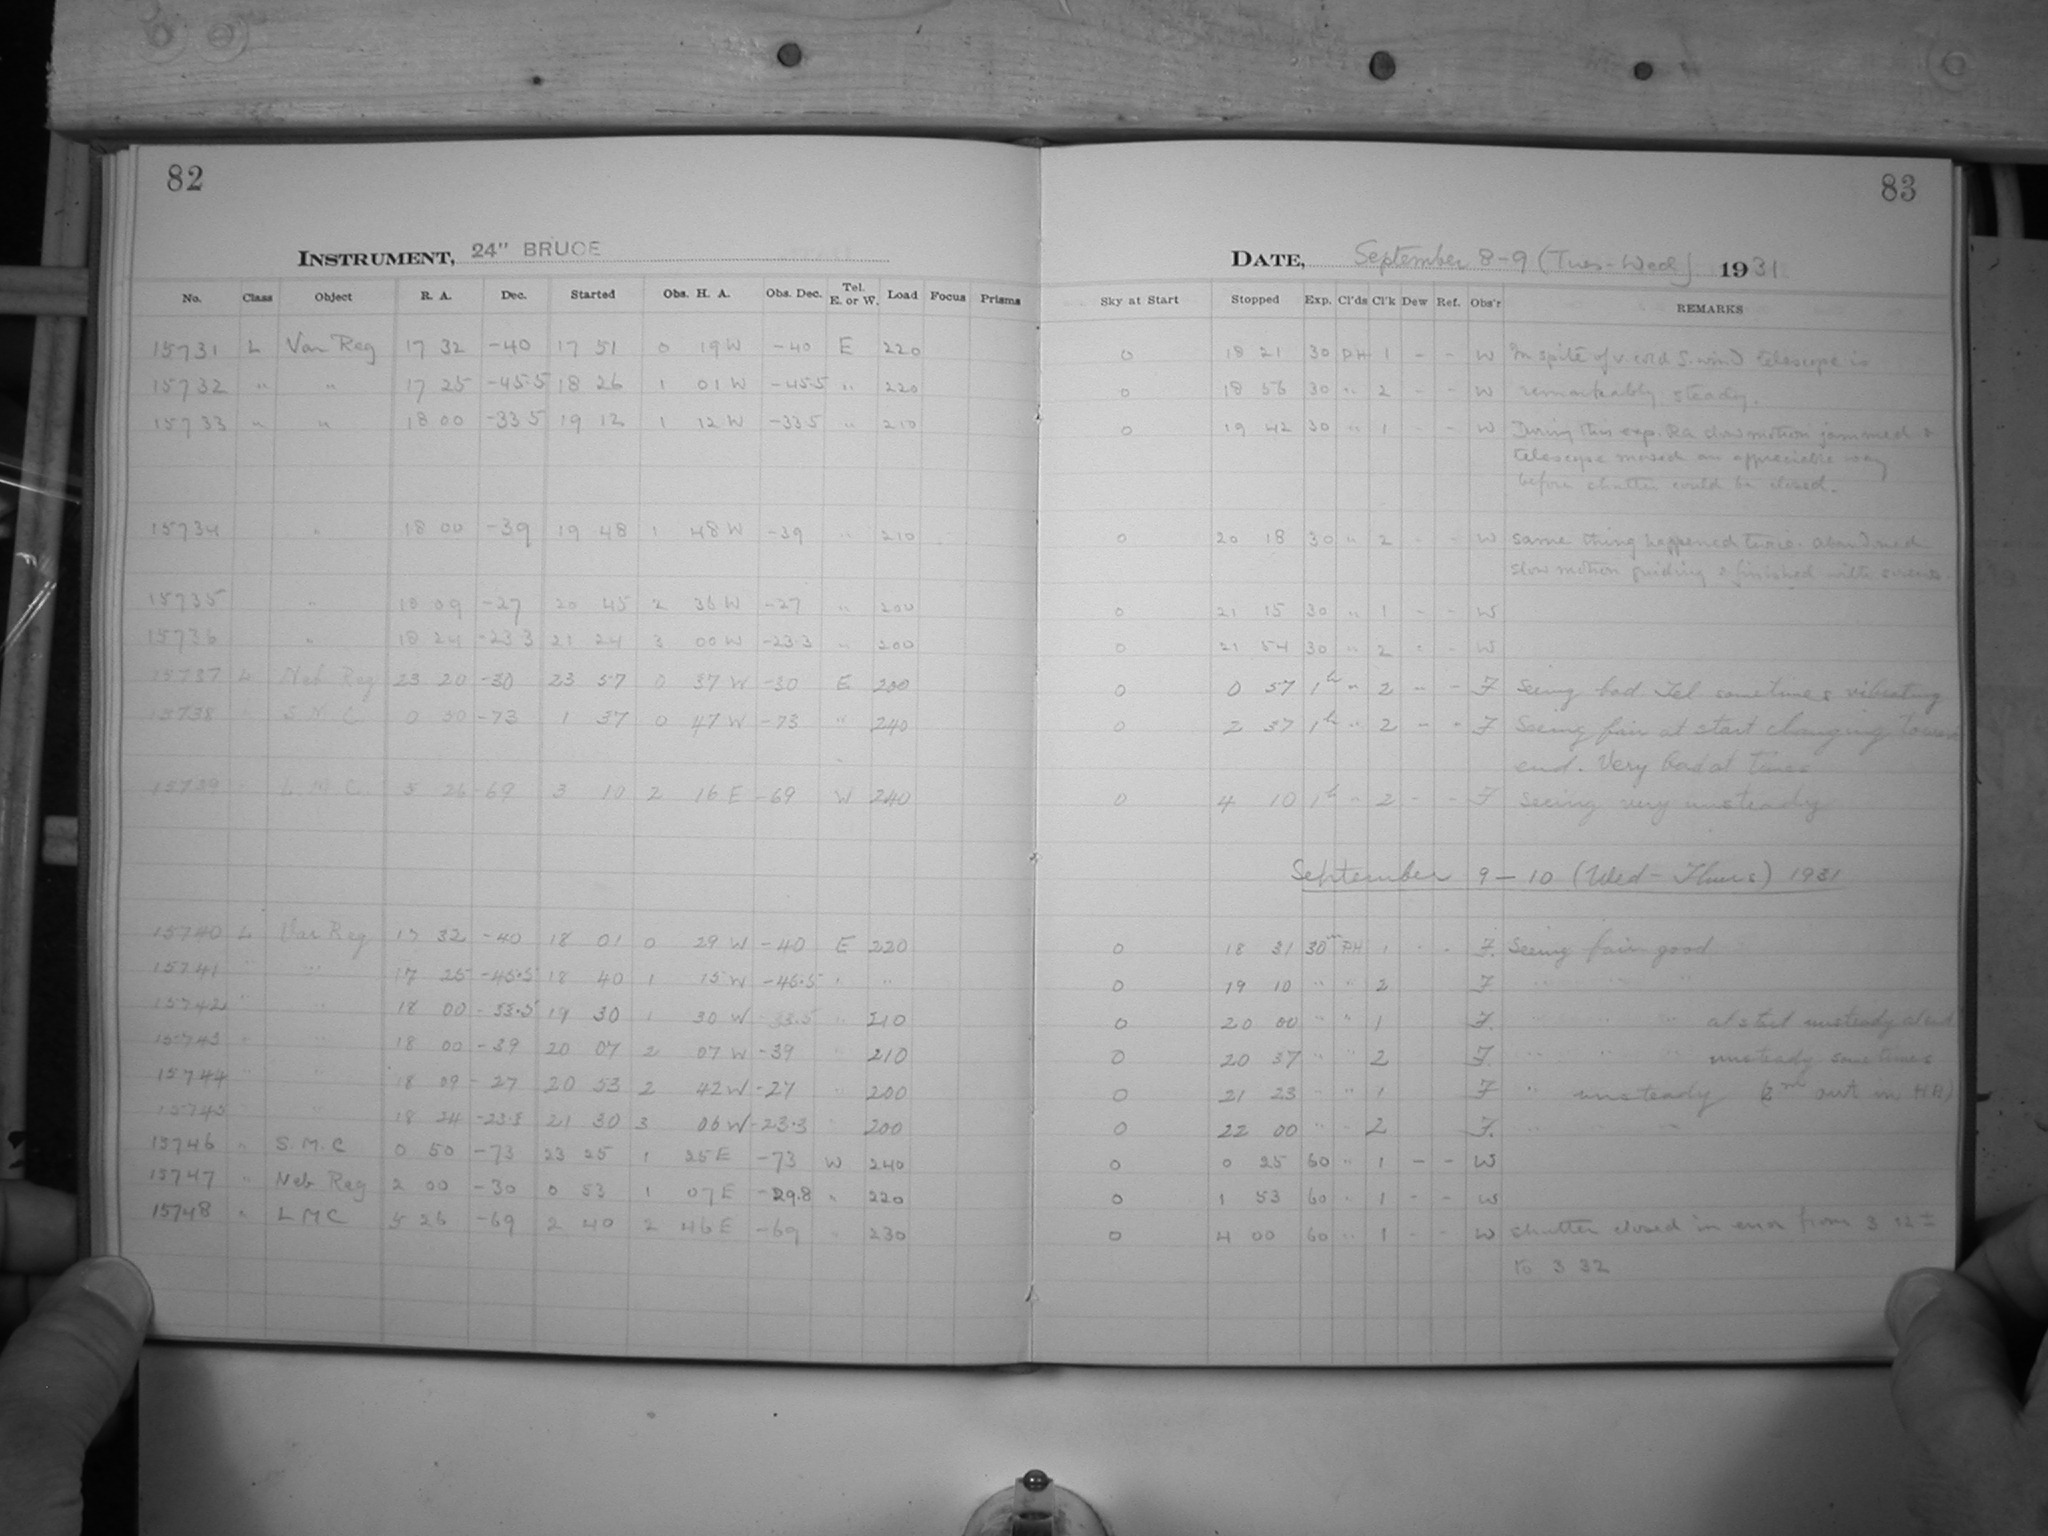 82
83
INSTRUMENT, 24" BRUCE
DATE, September 8-9 (Tues-Wed) 1931
No. Class Object R. A. Dec. Started Obs. H. A. Obs. Dec. Tel. E. or W. Load Focus Prisms Sky at Start Stopped Exp. Cl'ds Cl'k Dew Ref. Obs'r REMARKS
15731 L Var Reg 17 32 -40 17 51 0 19 W -40 E 220 0 18 21 30 PH 1 - - W In spite of v. cold S. wind telescope is
15732 " " 17 25 -45.5 18 26 1 01 W -45.5 " 220 0 18 56 30 " 2 - - W remarkably steady.
15733 " " 18 00 -33.5 19 12 1 12 W -33.5 " 210 0 19 42 30 " 1 - - W During this exp. RA slow motion jammed &
telescope moved an appreciable way
before shutter could be closed.
15734 " 18 00 -39 19 48 1 48 W -39 " 210 0 20 18 30 " 2 - - W Same thing happened twice. abandoned
slow motion guiding & finished with screws.
15735 " 18 09 -27 20 45 2 36 W -27 " 200 0 21 15 30 " 1 - - W
15736 " 18 24 -23.3 21 24 3 00 W -23.3 " 200 0 21 54 30 " 2 - - W
15737 L Neb Reg 23 20 -30 23 57 0 37 W -30 E 200 0 0 57 1h " 2 " - F Seeing bad Tel sometimes vibrating
15738 " S.M.C. 0 50 -73 1 37 0 47 W -73 " 240 0 2 37 1h " 2 - - F Seeing fair at start changing toward
end. Very bad at times
15739 L.M.C. 5 26 -69 3 10 2 16 E -69 W 240 0 4 10 1h " 2 - - F Seeing very unsteady
September 9-10 (Wed-Thurs) 1931
15740 L Var Reg 17 32 -40 18 01 0 29 W -40 E 220 0 18 31 30m PH 1 - - F. Seeing fair good
15741 " " 17 25 -45.5 18 40 1 15 W -45.5 " " 0 19 10 " " 2 F. " " "
15742 " " 18 00 -33.5 19 30 1 30 W -33.5 " 210 0 20 00 " " 1 F. " " " at start unsteady at end
15743 " " 18 00 -39 20 07 2 07 W -39 " 210 0 20 37 " " 2 F. " " " unsteady sometimes
15744 " " 18 09 -27 20 53 2 42 W -27 " 200 0 21 23 " " 1 F " unsteady out in HA)
15745 " " 18 24 -23.3 21 30 3 06 W -23.3 " 200 0 22 00 " " 2 F. " "
15746 " S.M.C 0 50 -73 23 25 1 25 E -73 W 240 0 0 25 60 " 1 - - W
15747 " Neb Reg 2 00 -30 0 53 1 07 E -29.8 " 220 0 1 53 60 " 1 - - W
15748 " L M C 5 26 -69 2 40 2 46 E -69 " 230 0 4 00 60 " 1 - - W shutter closed in error from 3 12 ±
to 3 32